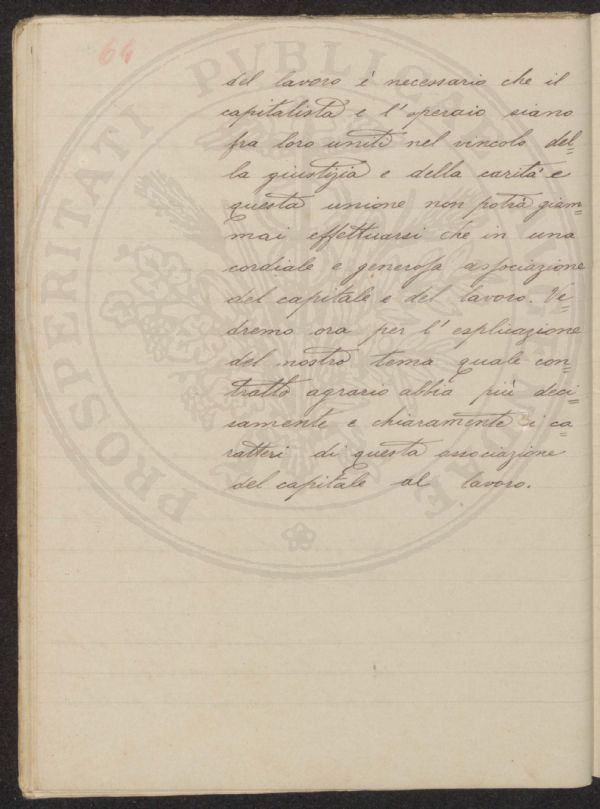 64
del lavoro è necessario che il
capitalista e l'operaio siano
fra loro uniti nel vincolo del=
la giustizia e della carità e
questa unione non potrà giam=
mai effettuarsi che in una
cordiale e generosa associazione
del capitale e del lavoro. Ve=
dremo ora per l'esplicazione
del nostro tema quale con=
tratto agrario abbia più deci=
samente e chiaramente i ca=
ratteri di questa associazione
del capitale al lavoro.
PROSPERITATI PVBLICAE